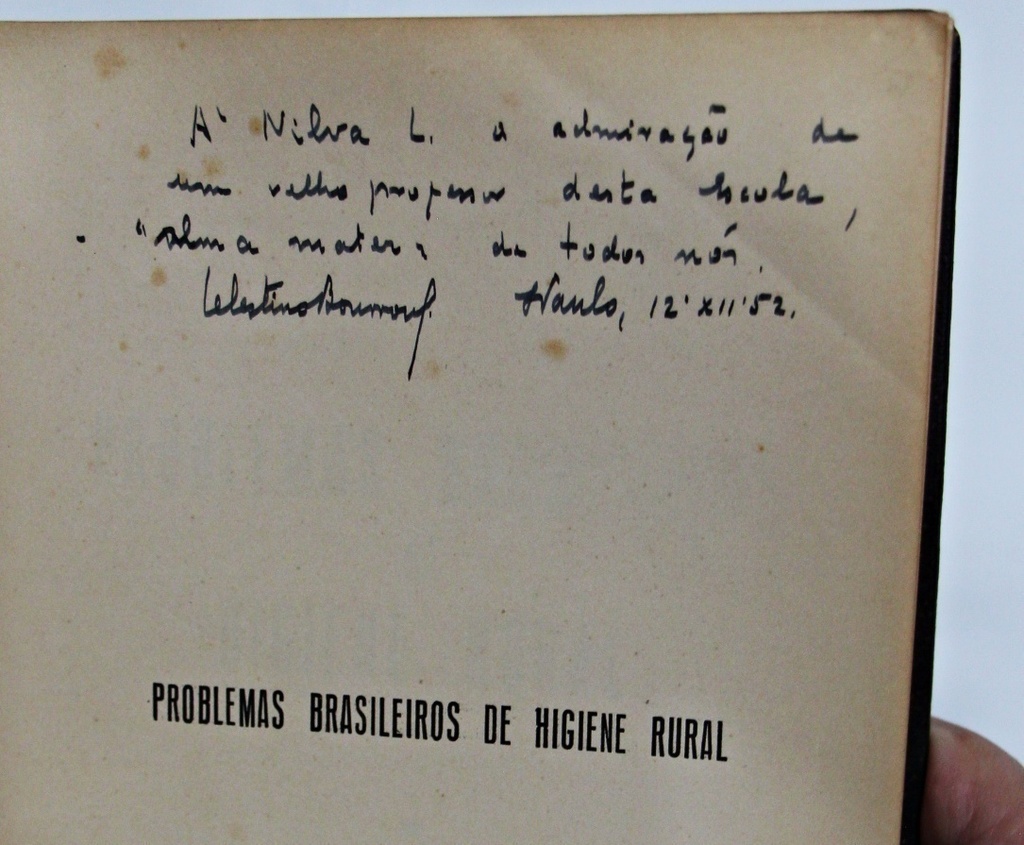 À Nilva L. a admiração de
um velho professor desta Escola,
"alma mater" de todos nós.
Celestino Bourroul. S. Paulo, 12.XII.52.
PROBLEMAS BRASILEIROS DE HIGIENE RURAL